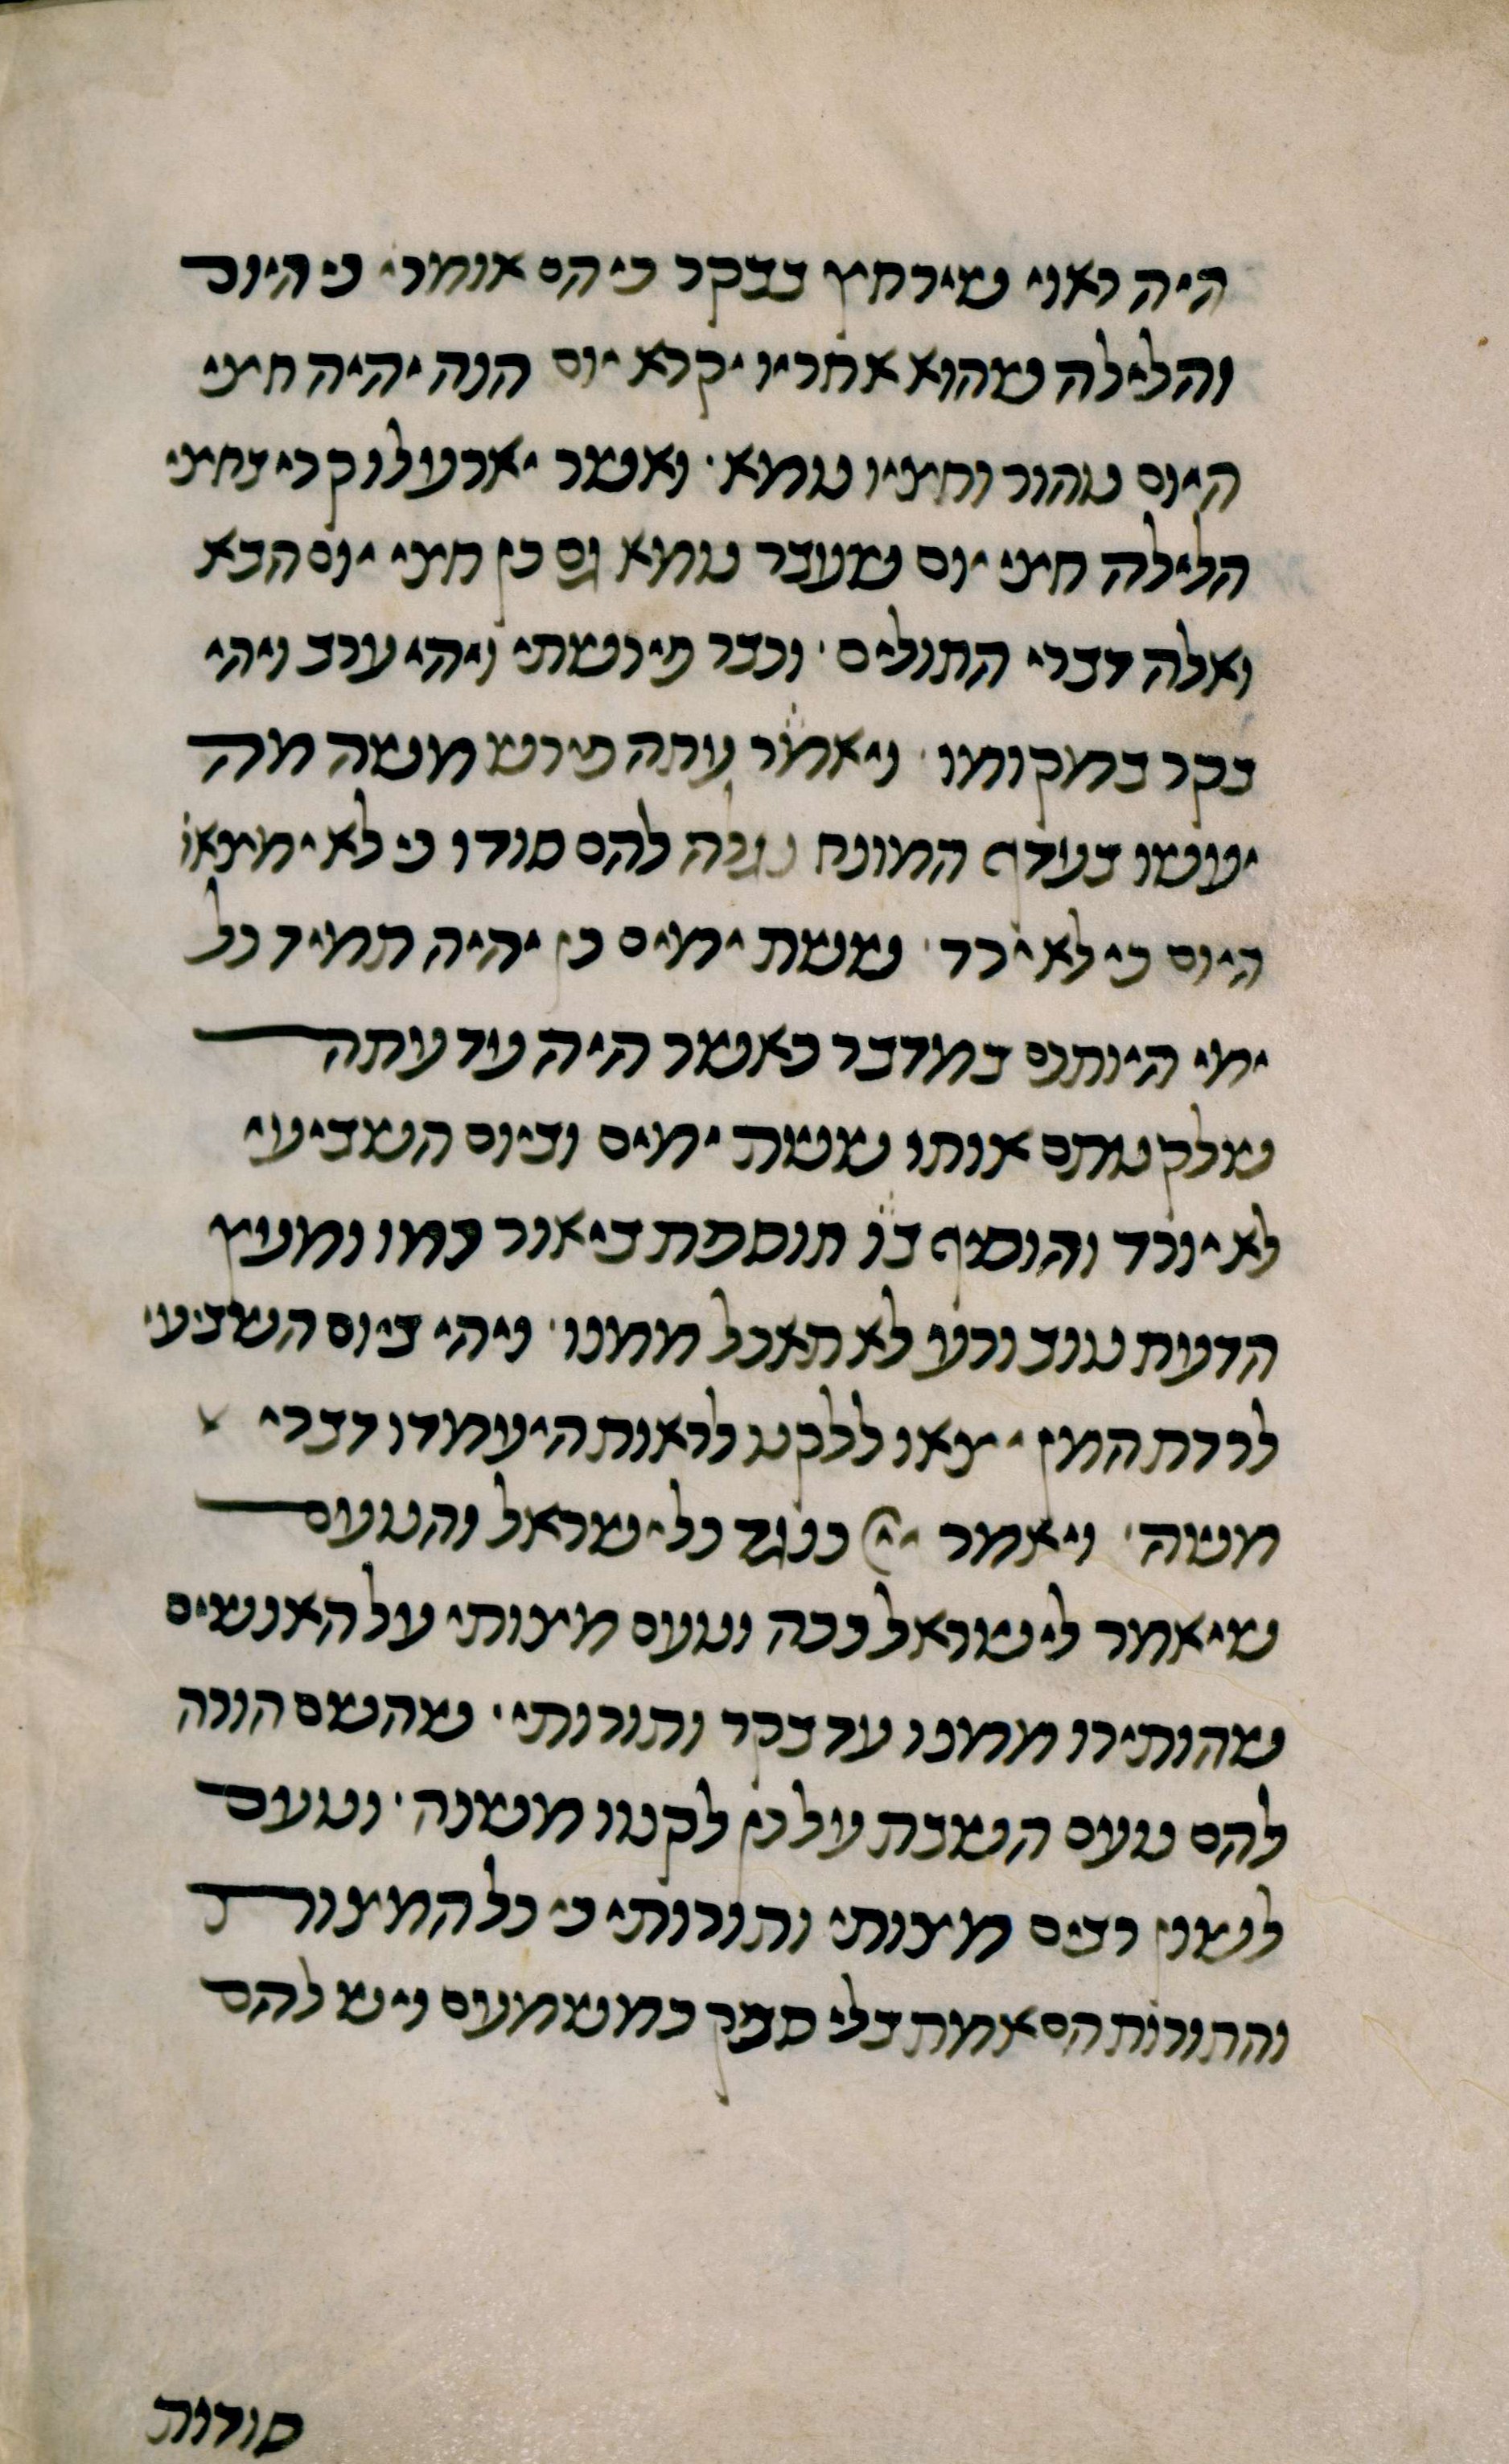 היה ראוי שירחץ בבקר כי הם אומרי׳ כי היום
והלילה שהוא אחריו יקרא יום הנה יהיה חצי
היום טהור וחציו טמא׳ ואשר יארע לו קרי בחצי
הלילה חצי יום שעבר טמא גם כן חצי יום הבא
ואלה דברי התולים׳ וכבר פירשתי ויהי ערב ויהי
בקר במקומו׳ ויאמר עתה פירש משה מה
יעשו בעדף המונח נגלה להם סודו כי לא ימצאו
היום כי לא ירד׳ ששת ימים כן יהיה תמיד כל
ימי היותכם במדבר כאשר היה עד עתה
שלקטתם אותו ששת ימים וביום השביעי
לא יורד והוסיף בו תוספת ביאור כמו ומעץ
הדעת טוב ורע לא תאכל ממנו׳ ויהי ביום השביעי
לרדת המן יצאו ללקט לראות היעמדו דברי
משה׳ ויאמר יי׳ כנגד כל ישראל והטעם
שיאמר לישראל ככה וטעם מצותי על האנשים
שהותירו ממנו עד בקר ותורותי׳ שהשם הורה
להם טעם השבת על כן לקטו משנה׳ וטעם
לשון רבים מצותי ותורותי כי כל המצות
והתורות הם אמת בלי ספק כמשמעם ויש להם
סודות